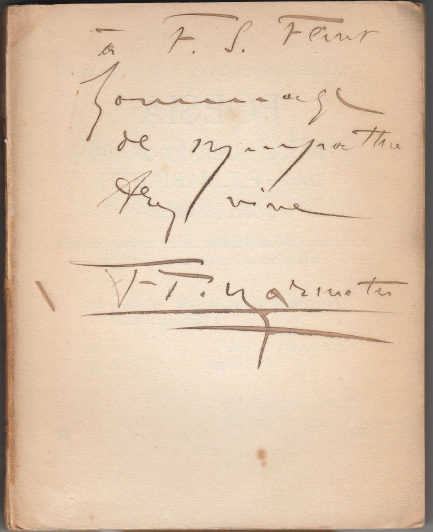 à F. S. Flint
hommage
de sympathie
très vive
F. T. Marinetti